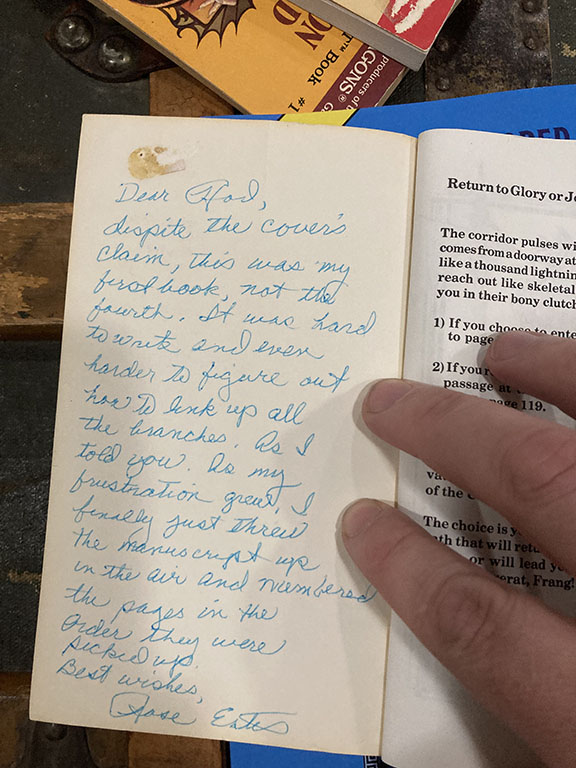 ON
D
R™ Book
#1
producers of
GONS®
RED
Dear Rod,
dispite the cover's
claim, this was my
first book, not the
fourth. It was hard
to write and even
harder to figure out
how to link up all
the branches. As I
told you. As my
frustration grew, I
finally just threw
the manuscript up
in the air and numbered
the pages in the
order they were
picked up.
Best wishes,
Rose Estes
Return to Glory or
The corridor pulses
comes from a doorway at
like a thousand
reach out like skeletal
you in their bony
1) If you choose to
to page
2) If you
passage at
page 119.
of the
The choice is
that will
or will lead
Frang!